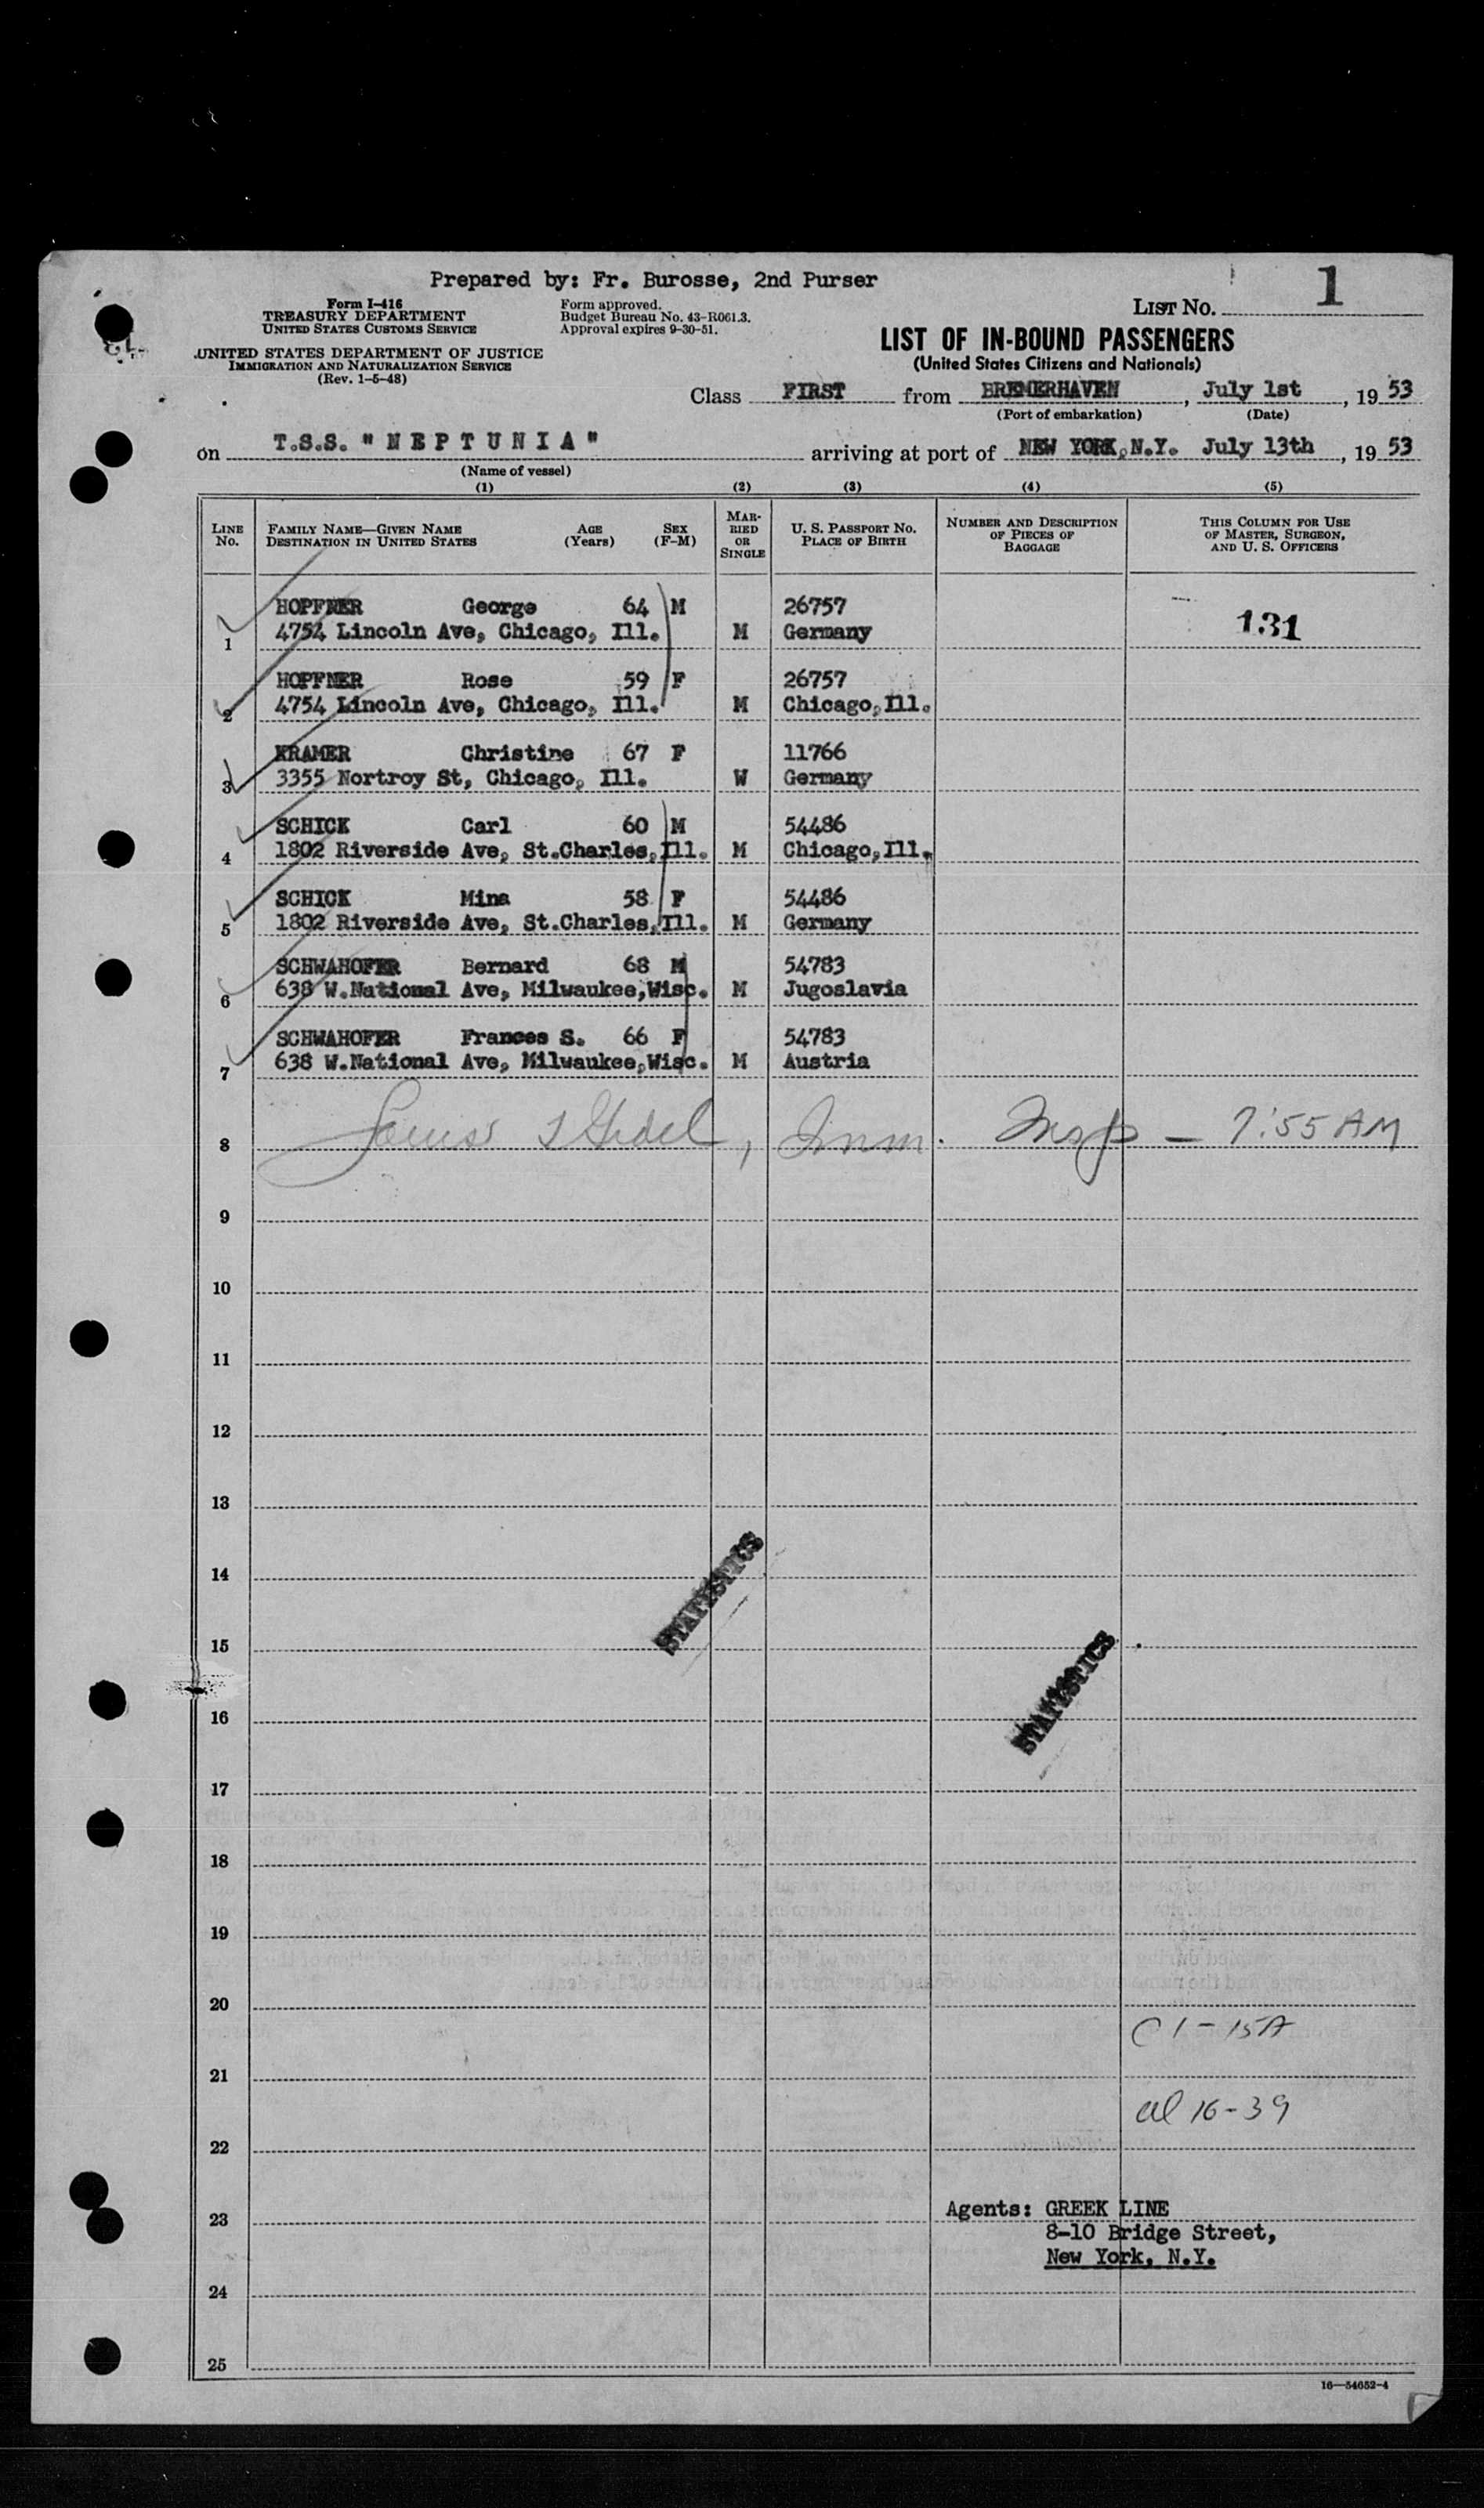 Prepared by: Fr. Burosse, 2nd Purser
1
Form I-416
TREASURY DEPARTMENT
UNITED STATES CUSTOMS SERVICE
Form approved.
Budget Bureau No. 43-R061.3.
Approval expires 9-30-51.
LIST NO.
UNITED STATES DEPARTMENT OF JUSTICE
IMMIGRATION AND NATURALIZATION SERVICE
(Rev. 1-5-48)
LIST OF IN-BOUND PASSENGERS
(United States Citizens and Nationals)
Class FIRST from BREMERHAVEN, July 1st, 19 53
(Port of embarkation) (Date)
on T.S.S. "NEPTUNIA" arriving at port of NEW YORK, N.Y. July 13th, 19 53
(Name of vessel)
(1) (2) (3) (4) (5)
LINE NO.
FAMILY NAME—GIVEN NAME AGE SEX
DESTINATION IN UNITED STATES (Years) (F-M)
MARRIED OR SINGLE
U. S. PASSPORT NO.
PLACE OF BIRTH
NUMBER AND DESCRIPTION
OF PIECES OF
BAGGAGE
THIS COLUMN FOR USE
OF MASTER, SURGEON,
AND U. S. OFFICERS
HOPFNER George 64 M 26757 131
1 4754 Lincoln Ave, Chicago, Ill. M Germany
HOPFNER Rose 59 F 26757
2 4754 Lincoln Ave, Chicago, Ill. M Chicago, Ill.
KRAMER Christine 67 F 11766
3 3355 Nortroy St, Chicago, Ill. W Germany
SCHICK Carl 60 M 54486
4 1802 Riverside Ave, St.Charles, Ill. M Chicago, Ill.
SCHICK Mina 58 F 54486
5 1802 Riverside Ave, St.Charles, Ill. M Germany
SCHWAHOFER Bernard 68 M 54783
6 638 W.National Ave, Milwaukee, Wisc. M Jugoslavia
SCHWAHOFER Frances S. 66 F 54783
7 638 W.National Ave, Milwaukee, Wisc. M Austria
8 Imm. Insp — 7:55 AM
9
10
11
12
13
14
STATISTICS
15
STATISTICS
16
17
18
19
20
C 1 - 15A
21
al 16-39
22
Agents: GREEK LINE
23
8-10 Bridge Street,
New York, N.Y.
24
25
16—54652-4